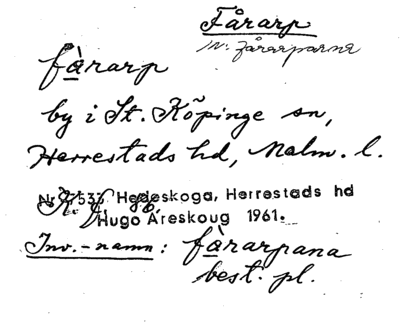 Fårarp
fàrarp
by i St. Köpinge sn,
Herrestads hd, Malm. l.
Hedeskoga, Herrestads hd
Hugo Areskoug 1961.
Inv.-namn: fàrarpana
best. pl.